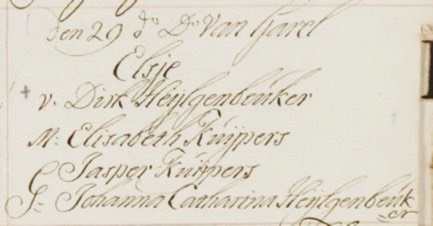 den 29 do Ds Van Harel
Elsje
+ v. Dirk Heylgenbeuker
M: Elisabeth Kuijpers
G Jasper Kuijpers
G- Johanna Catharina Heylgenbeuk=
er